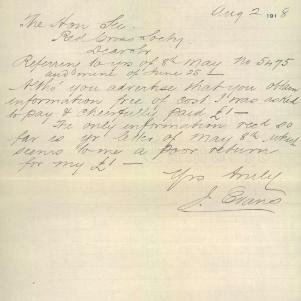 Aug 2 1918
The Hon Sec
Red Cross Socty
Dear Sir
Referring to yrs of 8th May No 5475
and mine of June 25 -
Altho' you advertise that you obtain
information free of cost I was asked
to pay & cheerfully paid £1 -
The only information recd so
far is yr letter of May 8th which
seems to me a poor return
for my £1 -
Yrs truly
J. Evans